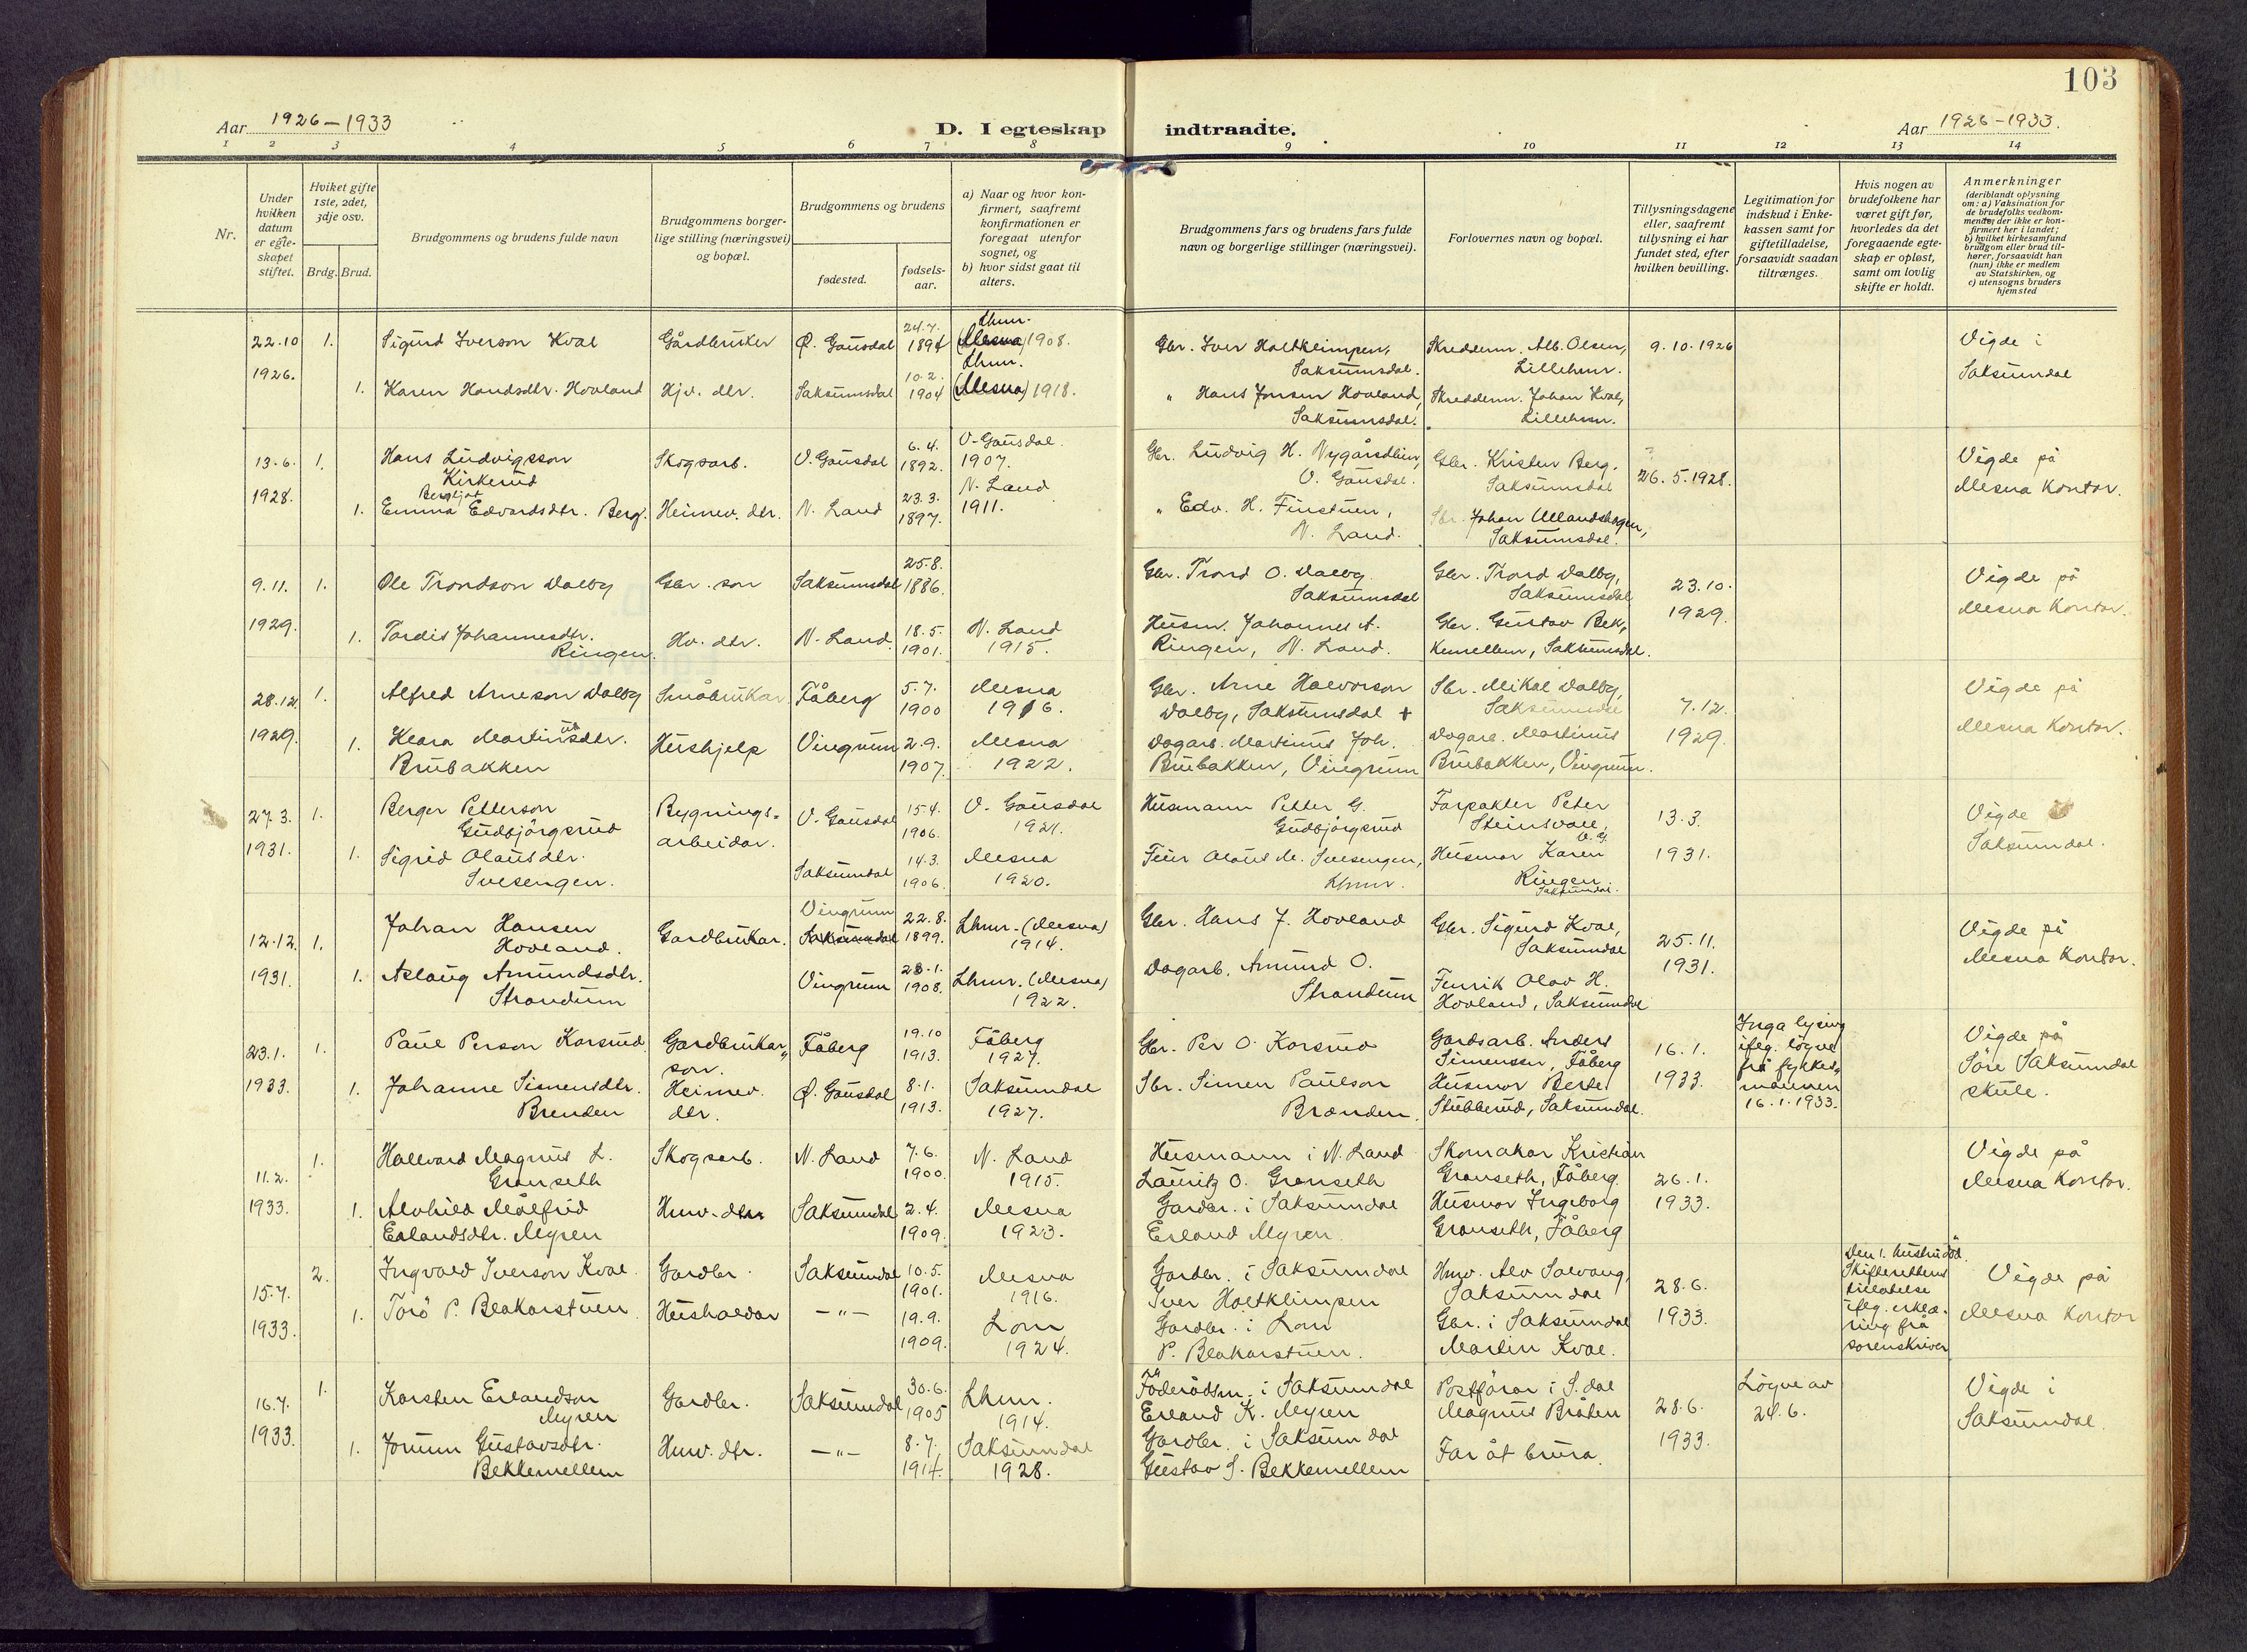 103
Aar 1926-1933
D. I egteskap indtraadte.
Aar 1926-1933.
1 2 3 4 5 6 7 8 9 10 11 12 13 14
Nr.
Under hvilken datum er egteskapet stiftet.
Hviket gifte 1ste, 2det, 3dje osv.
Brdg. Brud.
Brudgommens og brudens fulde navn
Brudgommens borgerlige stilling (næringsvei) og bopæl.
Brudgommens og brudens
fødested.
fødselsaar.
a) Naar og hvor konfirmert, saafremt konfirmationen er foregaat utenfor sognet, og
b) hvor sidst gaat til alters.
Brudgommens fars og brudens fars fulde navn og borgerlige stillinger (næringsvei).
Forlovernes navn og bopæl.
Tillysningsdagene eller, saafremt tillysning ei har fundet sted, efter hvilken bevilling.
Legitimation for indskud i Enkekassen samt for giftetilladelse, forsaavidt saadan tiltrænges.
Hvis nogen av brudefolkene har været gift før, hvorledes da det foregaaende egteskap er opløst, samt om lovlig skifte er holdt.
Anmerkninger
(deriblandt oplysning om: a) Vaksination for de brudefolks vedkommende, der ikke er konfirmert her i landet;
b) hvilket kirkesamfund brudgom eller brud tilhører, forsaavidt han (hun) ikke er medlem av Statskirken, og
c) utensogns bruders hjemsted
22.10 1926. 1. Sigurd Iverson Kval Gårdbruker Ø. Gausdal 24.7. 1894 Lhmr. (Mesna) 1908.
Gbr. Iver Holtklimpen, Saksumsdal. Skreddern. Alb. Olsen, Lillehmr. 9.10.1926 Vigde i Saksumdal
1. Karen Hansdtr. Hovland Hjv. dtr. Saksumsdal 10.2. 1904 Lhmr. (Mesna) 1918.
" Hans Jonsen Hovland, Saksumsdal. Skreddern. Johan Kval, Lillehmr.
13.6. 1928. 1. Hans Ludvigsson Kirkerud Skogsarb. V. Gausdal 6.4. 1892. V-Gausdal. 1907.
Gbr. Ludvig H. Nygårdlien, V. Gausdal. Gbr. Kristen Berg. Saksumsdal ? 26.5.1928. Vigde på Mesna Kontor.
1. Emma Bergljot Edvardsdtr. Berg. Heimev. dtr. N. Land 23.3. 1897. N. Land 1911.
" Edv. H. Finstuen, N. Land. Sbr. Johan Ullandshagen, Saksumsdal.
9.11. 1929. 1. Ole Trondson Dalby Gbr. son Saksumsdal 25.8. 1886.
Gbr. Trond O. Dalby. Saksumsdal Gbr. Trond Dalby, Saksumsdal 23.10. 1929. Vigde på Mesna Kontor.
1. Tordis Johannesdtr. Ringen. Hv. dtr. N. Land. 18.5. 1901. N. Land 1915.
Husm. Johannes A. Ringen, N. Land. Gbr. Gustav Bekkemellem, Saksumsdal.
28.12. 1929. 1. Alfred Arneson Dalby Småbrukar Fåberg 5.7. 1900 Mesna 1916.
Gbr. Arne Halvorson Dalby, Saksumsdal + Sbr. Mikal Dalby, Saksumsdal 7.12. 1929. Vigde på Mesna Kontor.
1. Klara Martinusdtr. Brubakken Hushjelp Vingrum 2.9. 1907. Mesna 1922.
Dagarb. Martinus Joh. Brubakken, Vingrum Dagarb. Martinus Brubakken, Vingrum.
27.3. 1931. 1. Berger Petterson Gudbjörgsrud Bygningsarbeidar. V. Gausdal 15.4. 1906. V. Gausdal 1921.
Husmann Petter G. Gudbjörgsrud Forpakter Peter Steinsvoll, V. G. 13.3. 1931. Vigde i Saksumdal.
1. Sigrid Olausdtr. Svesengen. Saksumdal 14.3. 1906. Mesna 1920.
Olaus M. Svesengen, Lhmr. Husmor Karen Ringen. Saksumdal.
12.12. 1931. 1. Johan Hansen Hovland. Gardbrukar. Vingrum Saksumdal 22.8. 1899. Lhmr. (Mesna) 1914.
Gbr. Hans J. Hovland Gbr. Sigurd Kval, Saksumdal 25.11. 1931. Vigde på Mesna Kontor.
1. Aslaug Amundsdtr. Strandum Vingrum 28.1. 1908. Lhmr. (Mesna) 1922.
Dagarb. Amund O. Strandum Fenrik Olav H. Hovland, Saksumdal
23.1. 1933. 1. Paul Person Korsrud Gardbrukarson. Fåberg 19.10 1913. Fåberg 1927.
Gbr. Per O. Korsrud Gardsarb. Anders Simensen, Fåberg 16.1. 1933. Inga lysing ifflg. løgve frå fylkesmannen 16.1.1933. Vigde på Søre Saksumdal skule.
1. Johanne Simensdtr. Brenden Heimev. dtr. Ø. Gausdal 8.1. 1913. Saksumdal 1927.
Sbr. Simen Paulson Brænden. Husmor Berte Stubberud, Saksumdal.
11.2. 1933. 1. Hallvard Magnus L. Granseth Skogsarb. N. Land 7.6. 1900. N. Land 1915.
Husmann i N. Land Lauritz O. Granseth Skomakar Kristian Granseth, Fåberg. 26.1. 1933. Vigde på Mesna Kontor.
1. Alvhild Målfrid Erlandsdtr. Myren Hmv. dtr. Saksumdal 2.4. 1909. Mesna 1923.
Gardbr. i Saksumdal Erland Myren. Husmor Ingeborg Granseth, Fåberg
15.7. 1933. 2. Ingvald Iverson Kval. Gardbr. Saksumdal 10.5. 1901. Mesna 1916.
Gardbr. i Saksumdal Iver Holtklimpen Hmv. Alv Solvang, Saksumdal 28.6. 1933. Den 1. hustru död. Skifterettens tillatelse iflg. erklæring frå sorenskriver Vigde på Mesna Kontor
1. Torö P. Blakarstuen Hushaldar -"- 19.9. 1909. Lom 1924.
Gardbr. i Lom P. Blakarstuen. Gbr. i Saksumdal Martin Kval.
16.7. 1933. 1. Karsten Erlandson Myren Gardbr. Saksumdal 30.6. 1905 Lhmr. 1914.
Föderådsm. i Saksumdal Erland K. Myren Postförar i S.dal Magnus Bråten 28.6. 1933. Løgve av 24.6. Vigde i Saksumdal
1. Jorunn Gustavsdtr. Bekkemellem Hmv. dtr. -"- 8.7. 1914. Saksumdal 1928.
Gardbr. i Saksumdal Gustav S. Bekkemellem Far åt brura.